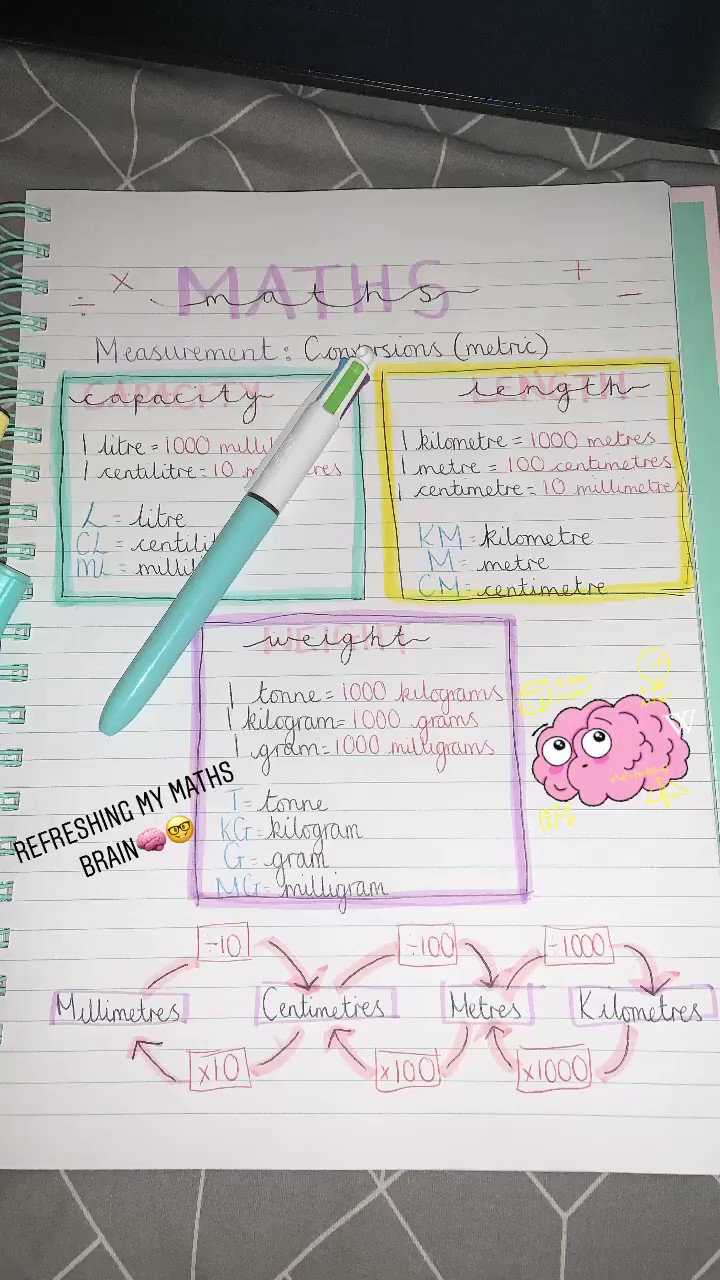 ÷ × MATHS + −
maths
Measurement: Conversions (metric)
CAPACITY
capacity
1 litre = 1000
1 centilitre = 10
L = litre
CL =
ML =
LENGTH
length
1 kilometre = 1000 metres
1 metre = 100 centimetres
1 centimetre = 10 millimetres
KM = kilometre
M = metre
CM = centimetre
WEIGHT
weight
1 tonne = 1000 kilograms
1 kilogram = 1000 grams
1 gram = 1000 milligrams
T = tonne
KG = kilogram
G = gram
MG = milligram
REFRESHING MY MATHS
BRAIN🧠🤓
÷10 ÷100 ÷1000
Millimetres Centimetres Metres Kilometres
×10 ×100 ×1000